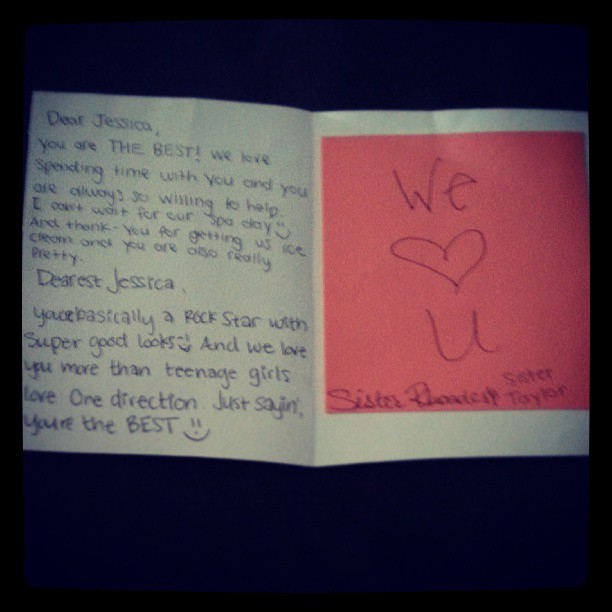 Dear Jessica,
you are THE BEST! We love
spending time with you and you
are always so willing to help.
I can't wait for our spa day
And thank-you for getting us ice
cream and you are also really
pretty.
Dearest Jessica,
you're basically a Rock Star with
Super good looks And we love
you more than teenage girls
love One direction. Just sayin',
you're the BEST
We
U
Sister
Sister
Taylor